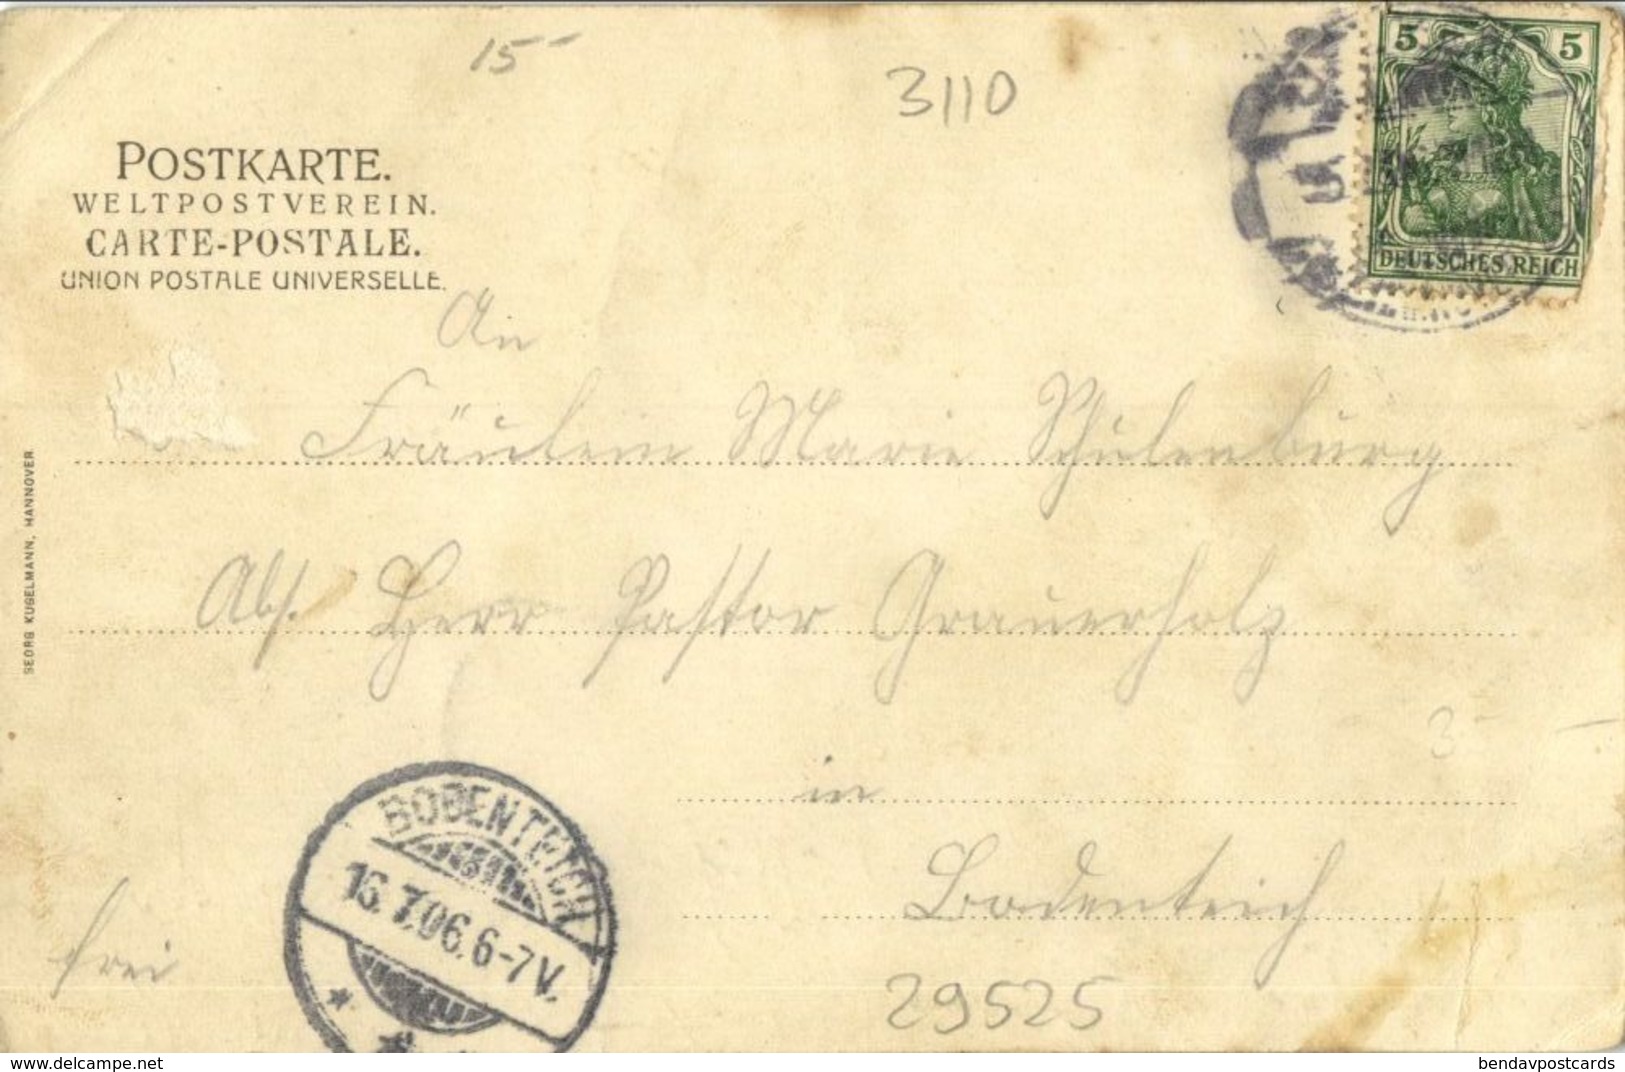 15-
3110
5 5
DEUTSCHES REICH
POSTKARTE.
WELTPOSTVEREIN.
CARTE-POSTALE.
UNION POSTALE UNIVERSELLE.
An
Fräulein Marie Schulenburg
Abs. Herr Pastor Grauerholz
3-
in
Bodenteich
29525
frei
BODENTEICH
16.7.06.6-7V.
GEORG KUGELMANN, HANNOVER
www.delcampe.net
bendavpostcards